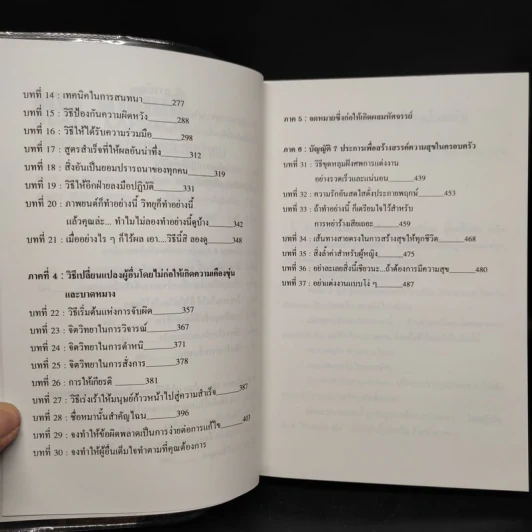 บทที่ 14 : เทคนิคในการสนทนา______277
บทที่ 15 : วิธีป้องกันความผิดหวัง______288
บทที่ 16 : วิธีให้ได้รับความร่วมมือ______298
บทที่ 17 : สูตรสำเร็จที่ให้ผลอันน่าทึ่ง______312
บทที่ 18 : สิ่งอันเป็นยอมปรารถนาของทุกคน______319
บทที่ 19 : วิธีให้อีกฝ่ายลงมือปฏิบัติ______331
บทที่ 20 : ภาพยนต์ก็ทำอย่างนี้ วิทยุก็ทำอย่างนี้
แล้วคุณล่ะ... ทำไมไม่ลองทำอย่างนี้ดูบ้าง___342
บทที่ 21 : เมื่ออย่างไร ๆ ก็ไร้ผล เอา....วิธีนี้สิ ลองดู___348
ภาคที่ 4 : วิธีเปลี่ยนแปลงผู้อื่นโดยไม่ก่อให้เกิดความเคืองขุ่น
และบาดหมาง
บทที่ 22 : วิธีเริ่มต้นแห่งการจับผิด______357
บทที่ 23 : จิตวิทยาในการวิจารณ์______367
บทที่ 24 : จิตวิทยาในการตำหนิ______371
บทที่ 25 : จิตวิทยาในการสั่งการ______378
บทที่ 26 : การให้เกียรติ ______381
บทที่ 27 : วิธีเร่งเร้าให้มนุษย์ก้าวหน้าไปสู่ความสำเร็จ___387
บทที่ 28 : ชื่อหมานั้นสำคัญไฉน______396
บทที่ 29 : จงทำให้ข้อผิดพลาดเป็นการง่ายต่อการแก้ไข___403
บทที่ 30 : จงทำให้ผู้อื่นเต็มใจทำตามที่คุณต้องการ
ภาค 5 : จดหมายซึ่งก่อให้เกิดผลมหัศจรรย์
ภาค 6 : บัญญัติ 7 ประการเพื่อสร้างสรรค์ความสุขในครอบครัว
บทที่ 31 : วิธีขุดหลุมฝังศพการแต่งงาน
อย่างรวดเร็วและแน่นอน______439
บทที่ 32 : ความรักอันสดใสดั่งประกายพฤกษ์______453
บทที่ 33 : ถ้าทำอย่างนี้ ก็เตรียมใจไว้สำหรับ
การหย่าร้างเสียเถอะ______459
บทที่ 34 : เส้นทางสายตรงในการสร้างสุขให้ทุกชีวิต______468
บทที่ 35 : สิ่งล้ำค่าสำหรับผู้หญิง______475
บทที่ 36 : อย่าละเลยสิ่งนี้เชียวนะ...ถ้าต้องการมีความสุข___480
บทที่ 37 : อย่าแต่งงานแบบโง่ ๆ______487